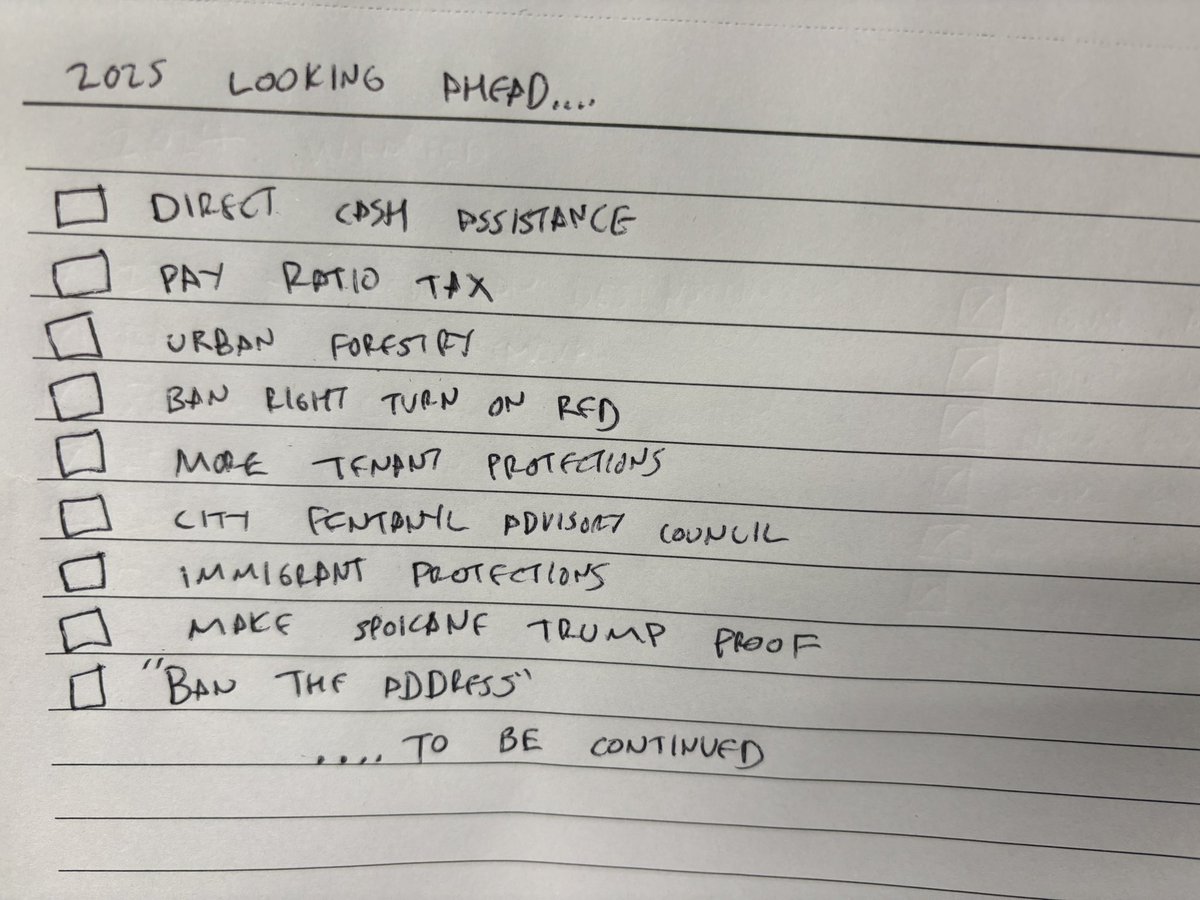 2025 LOOKING AHEAD....
DIRECT CASH ASSISTANCE
PAY RATIO TAX
URBAN FORESTRY
BAN RIGHT TURN ON RED
MORE TENANT PROTECTIONS
CITY FENTANYL ADVISORY COUNCIL
IMMIGRANT PROTECTIONS
MAKE SPOKANE TRUMP PROOF
"BAN THE ADDRESS"
....TO BE CONTINUED